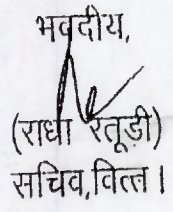 भवदीय,
(राधा रतूड़ी)
सचिव,वित्त।